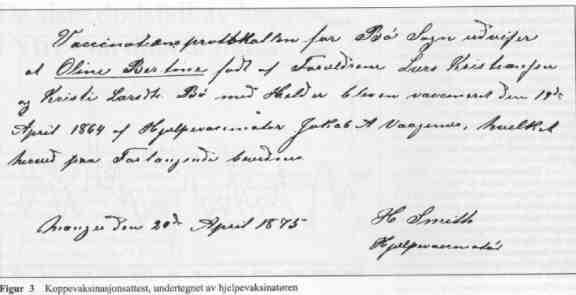 Vaccinationsprotokollen for Bø Sogn udviser
at Oline Bertine født af Forældrene Lars Kristiansen
og Kristi Larsdtr. Bø med Held er bleven vaccineret den 19de
April 1864 af Hjelpevaccinatør Jakob A Vaagenes, hvilket
herved paa Forlangende bevidnes
den 20de April 1875
H Smith
Hjelpevaccinatør
Figur 3 Koppevaksinasjonsattest, undertegnet av hjelpevaksinatøren